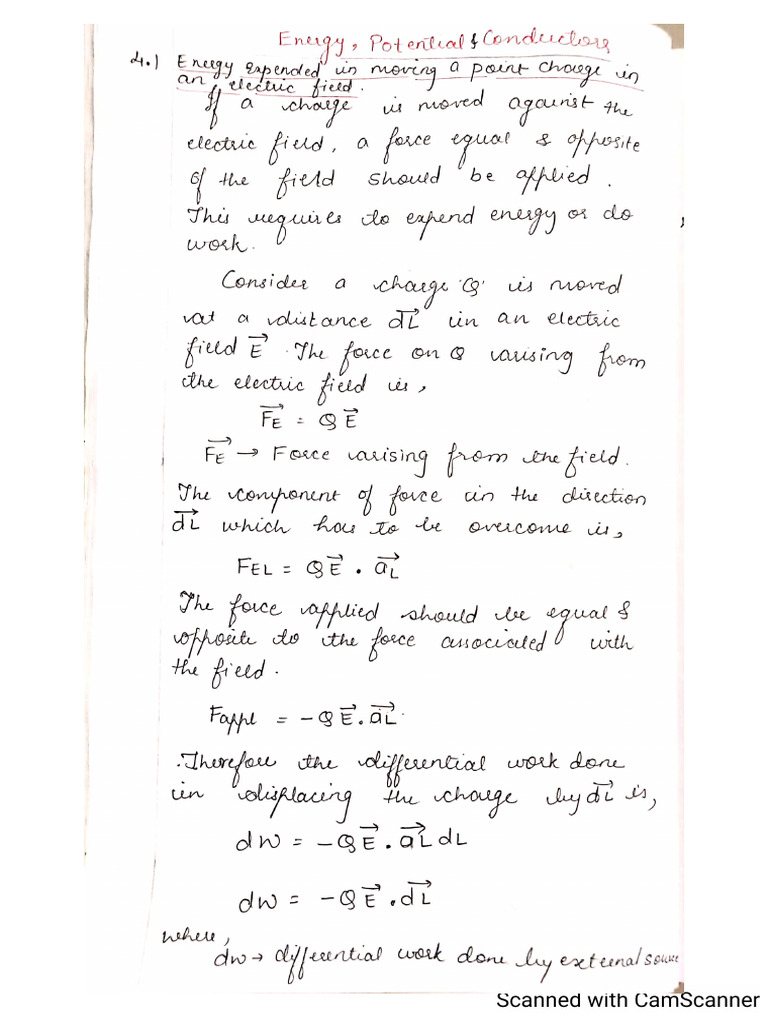 Energy, Potential & Conductors
4.) Energy expended in moving a point charge in
an electric field.
If a charge is moved against the
electric field, a force equal & opposite
of the field should be applied.
This requires to expend energy or do
work.
Consider a charge 'Q' is moved
at a distance dL in an electric
field E. The force on Q arising from
the electric field is,
FE = QE
FE → Force arising from the field.
The component of force in the direction
dL which has to be overcome is,
FEL = QE . aL
The force applied should be equal &
opposite to the force associated with
the field.
Fappl = -QE . aL.
Therefore the differential work done
in displacing the charge by dL is,
dw = -QE . aL dL
dw = -QE . dL
where,
dw → differential work done by external source
Scanned with CamScanner